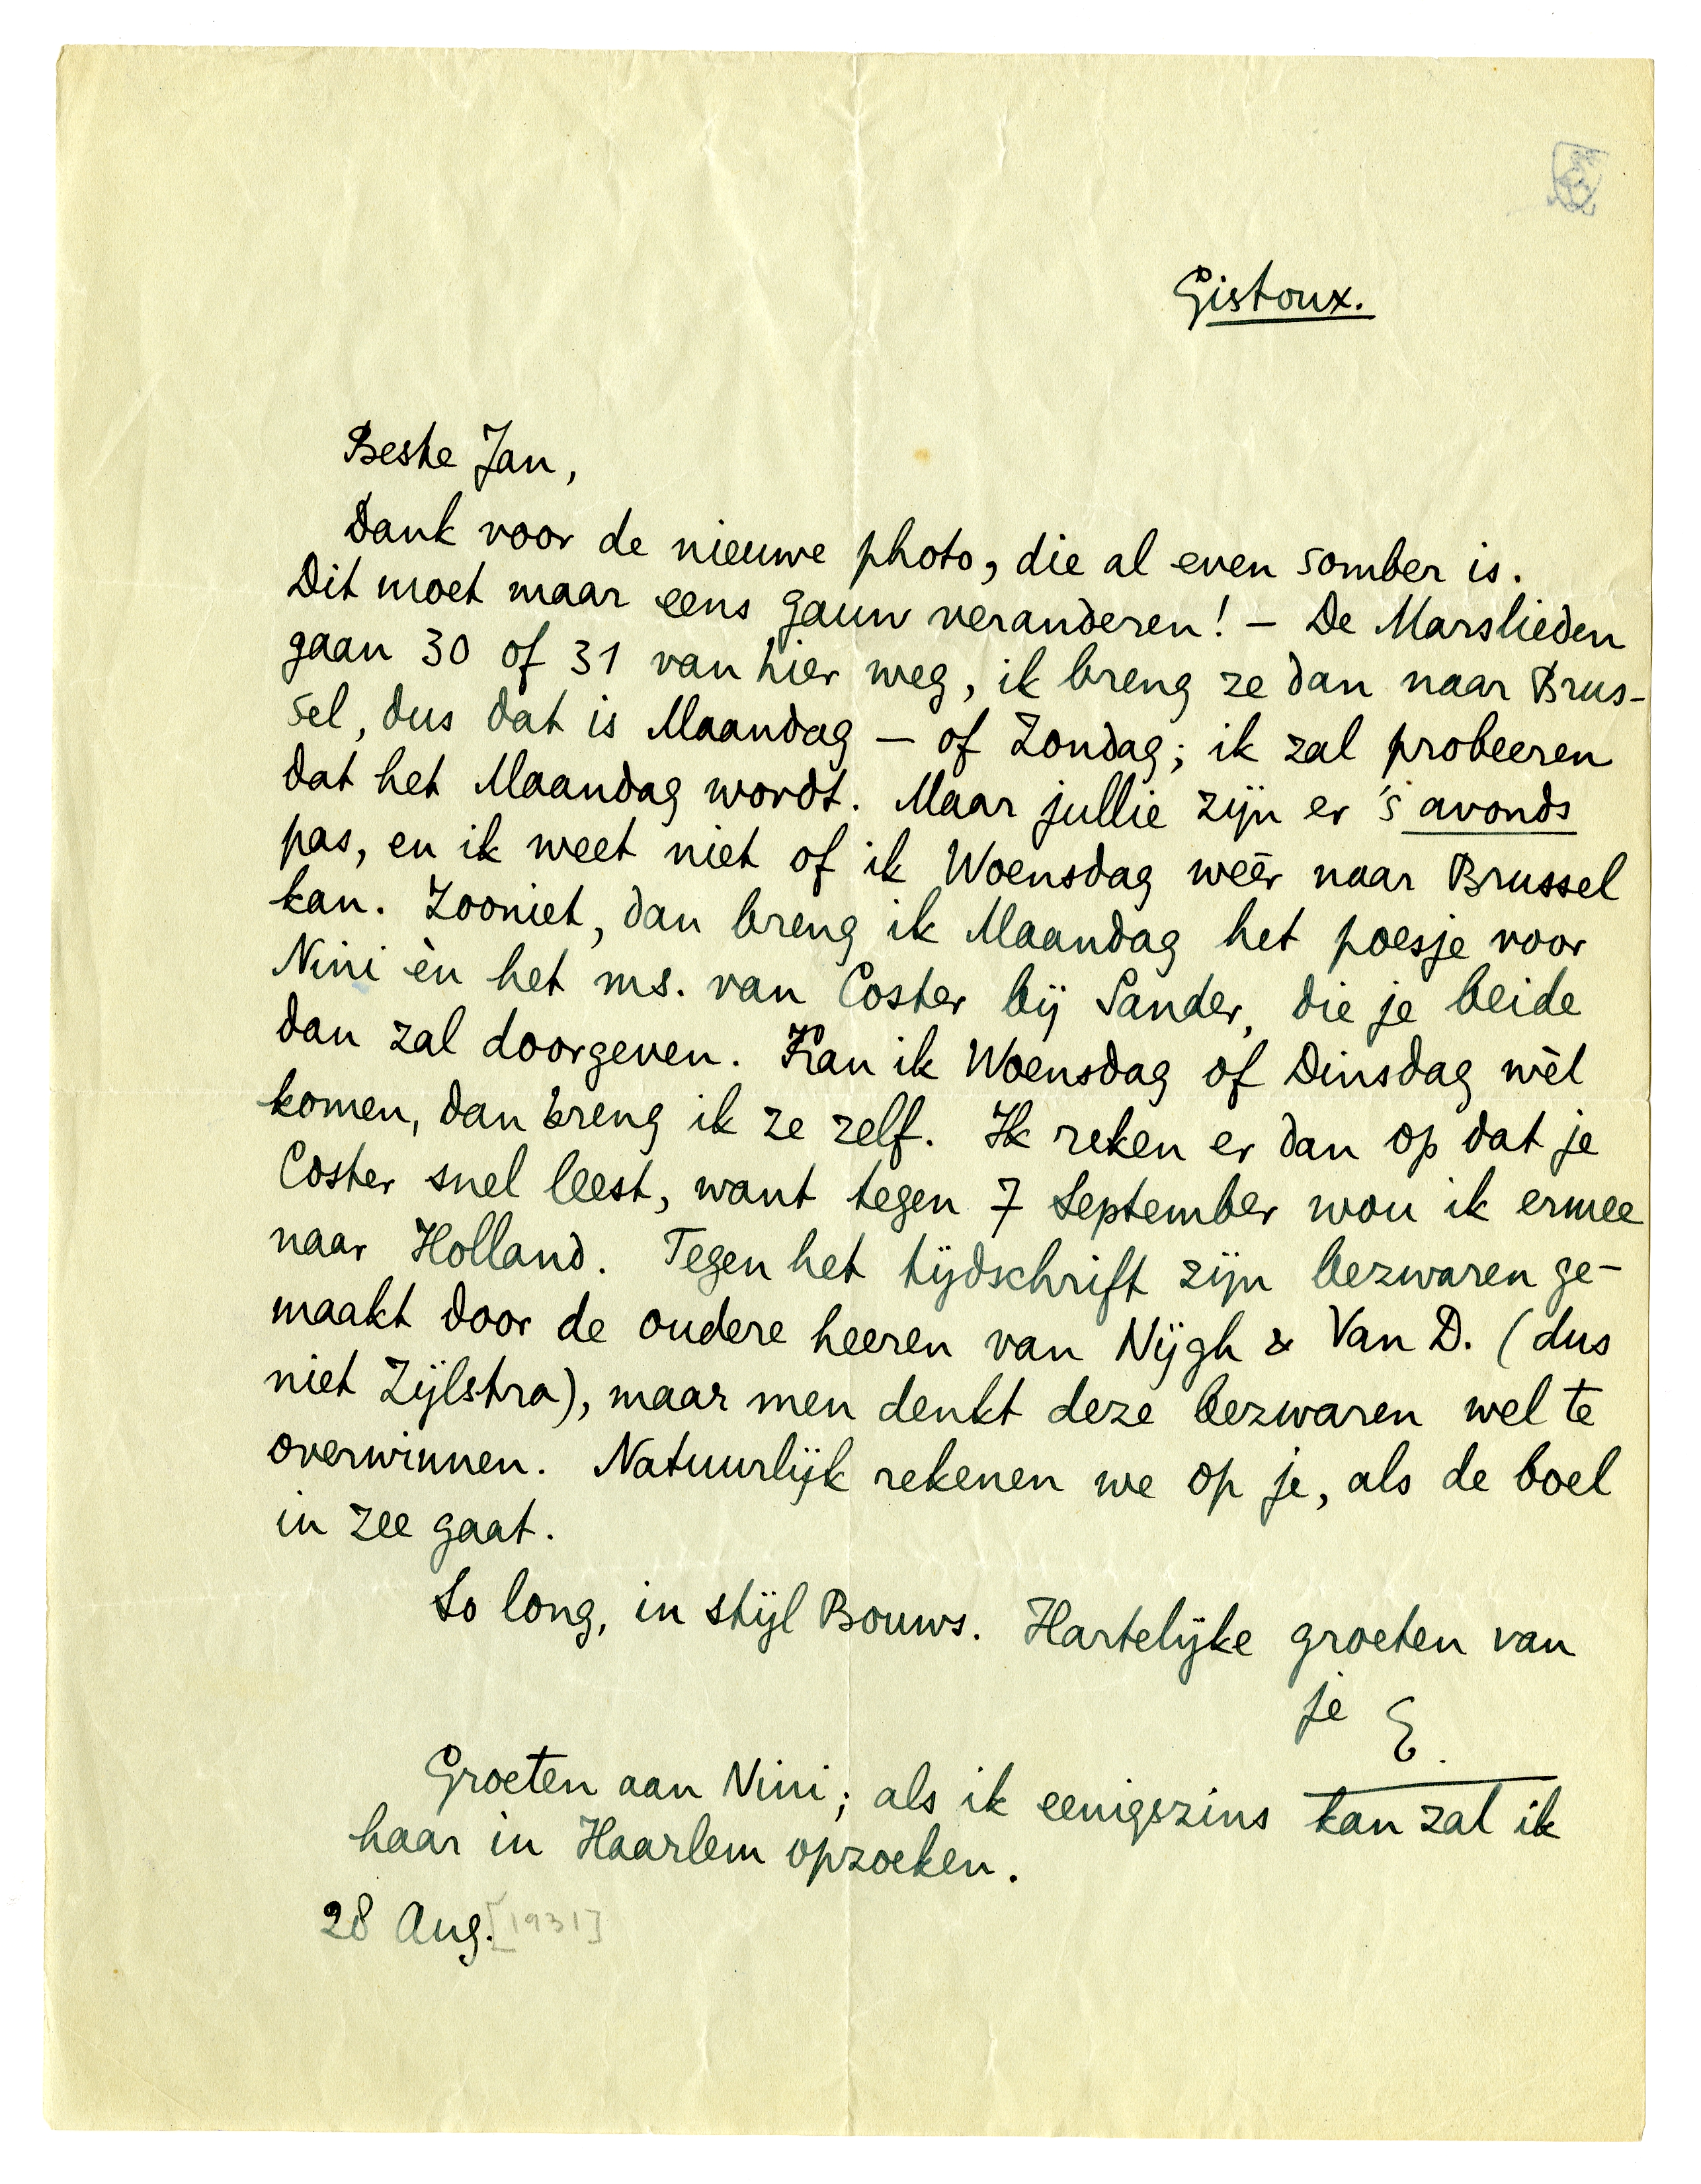 Gistoux.
Beste Jan,
Dank voor de nieuwe photo, die al even somber is.
Dit moet maar eens gauw veranderen! – De Marslieden
gaan 30 of 31 van hier weg, ik breng ze dan naar Brus-
sel, dus dat is Maandag – of Zondag; ik zal probeeren
dat het Maandag wordt. Maar jullie zijn er 's avonds
pas, en ik weet niet of ik Woensdag wéér naar Brussel
kan. Zooniet, dan breng ik Maandag het poesje voor
Nini èn het ms. van Coster bij Sander, die je beide
dan zal doorgeven. Kan ik Woensdag of Dinsdag wèl
komen, dan breng ik ze zelf. Ik reken er dan op dat je
Coster snel leest, want tegen 7 September wou ik ermee
naar Holland. Tegen het tijdschrift zijn bezwaren ge-
maakt door de oudere heeren van Nijgh & Van D. (dus
niet Zijlstra), maar men denkt deze bezwaren wel te
overwinnen. Natuurlijk rekenen we op je, als de boel
in zee gaat.
So long, in stijl Bouws. Hartelijke groeten van
je E.
Groeten aan Nini; als ik eenigszins kan zal ik
haar in Haarlem opzoeken.
28 Aug. [1931]